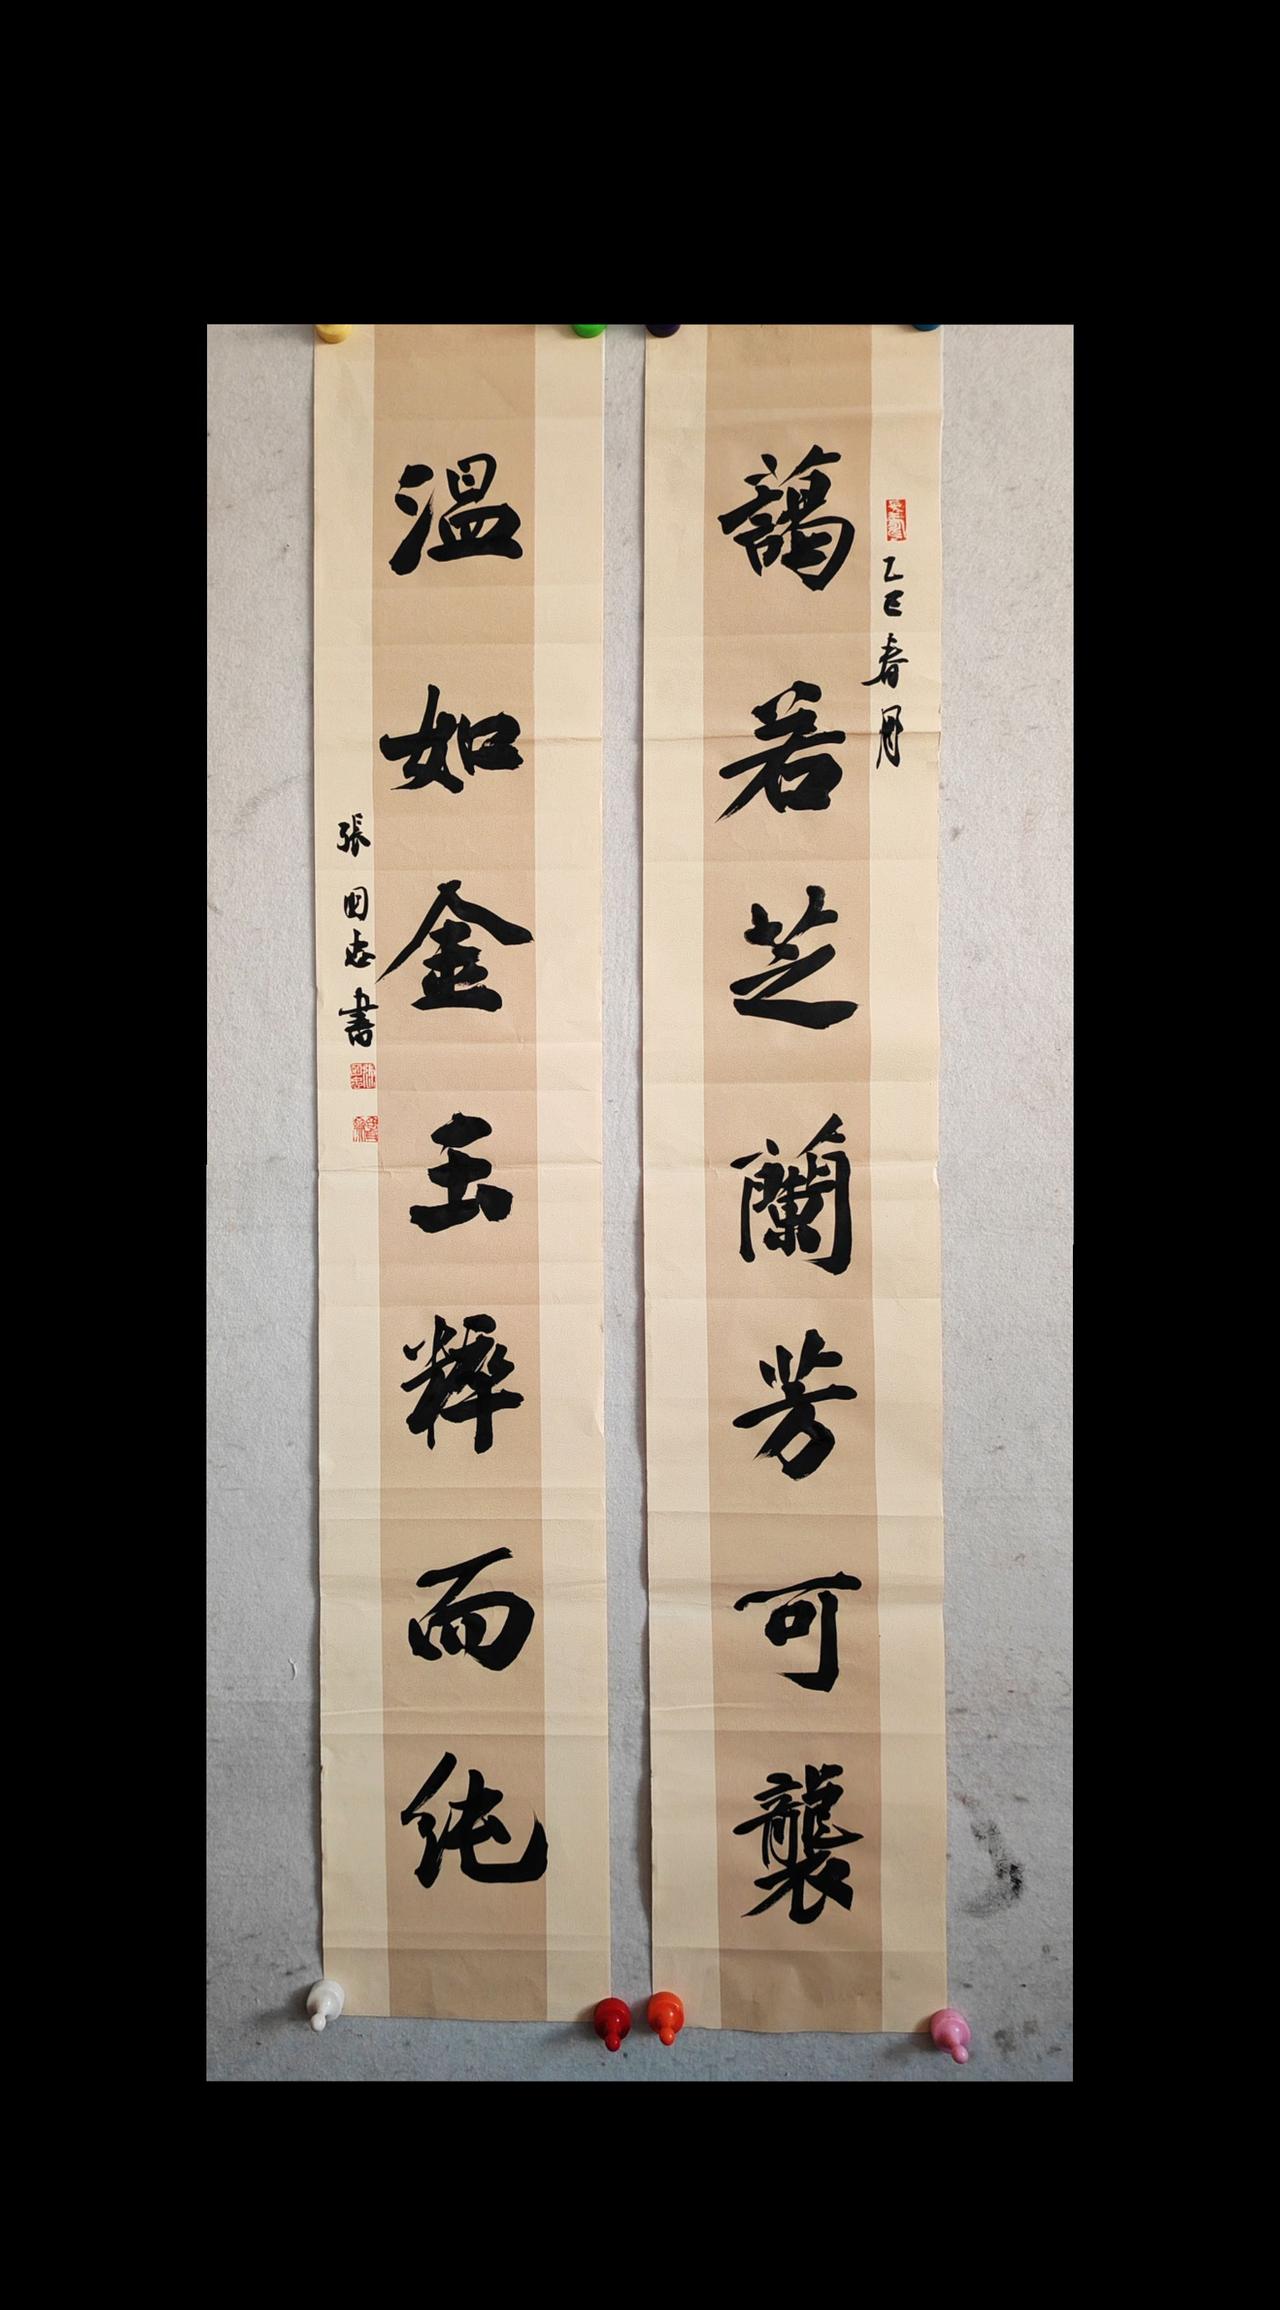 乙巳春月
藹若芝蘭芳可襲
溫如金玉粹而純
張国志書